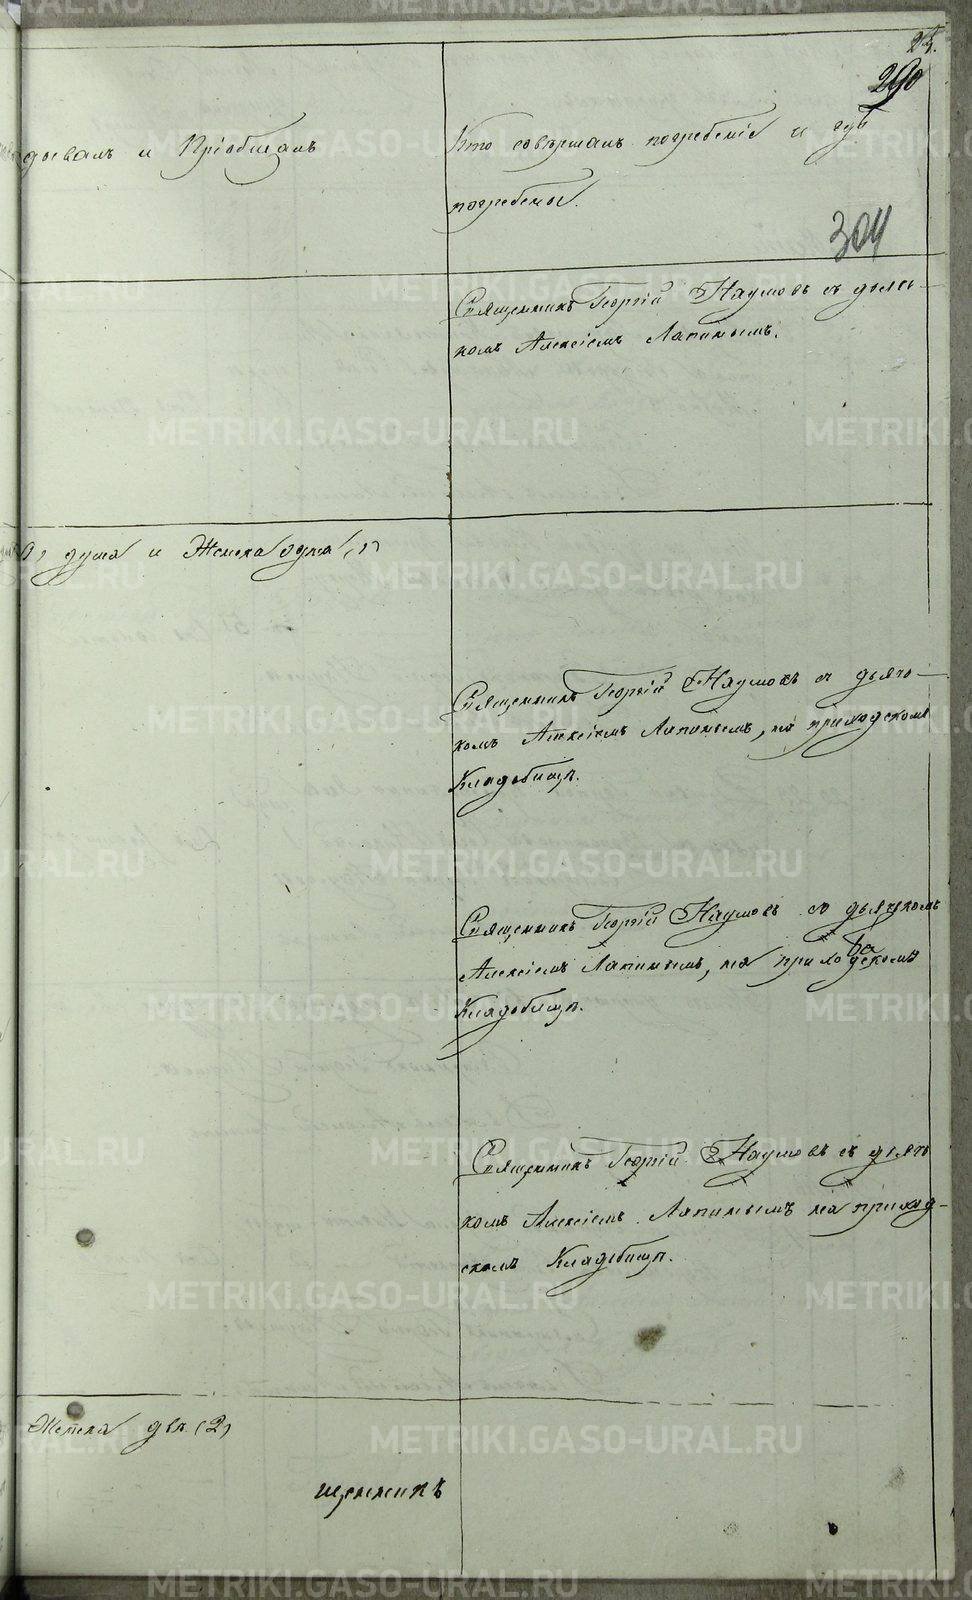 24.
290
довалъ и Пріобщалъ
Кто совершалъ погребеніе и гдѣ
погребены.
304
Священникъ Георгій Наумовъ съ дьяч-
комъ Алексіемъ Лапинымъ.
душа и Женска одна (1)
Священникъ Георгій Наумовъ съ дьяч-
комъ Алексіемъ Лапинымъ, на приходскомъ
Кладбищѣ.
Священникъ Георгій Наумовъ съ дьячкомъ
Алексіемъ Лапинымъ, на приходскомъ
Кладбищѣ.
Священникъ Георгій Наумовъ съ дьяч-
комъ Алексіемъ Лапинымъ на приход-
скомъ Кладбищѣ.
Женска двѣ (2)
щенникъ
METRIKI.GASO-URAL.RU